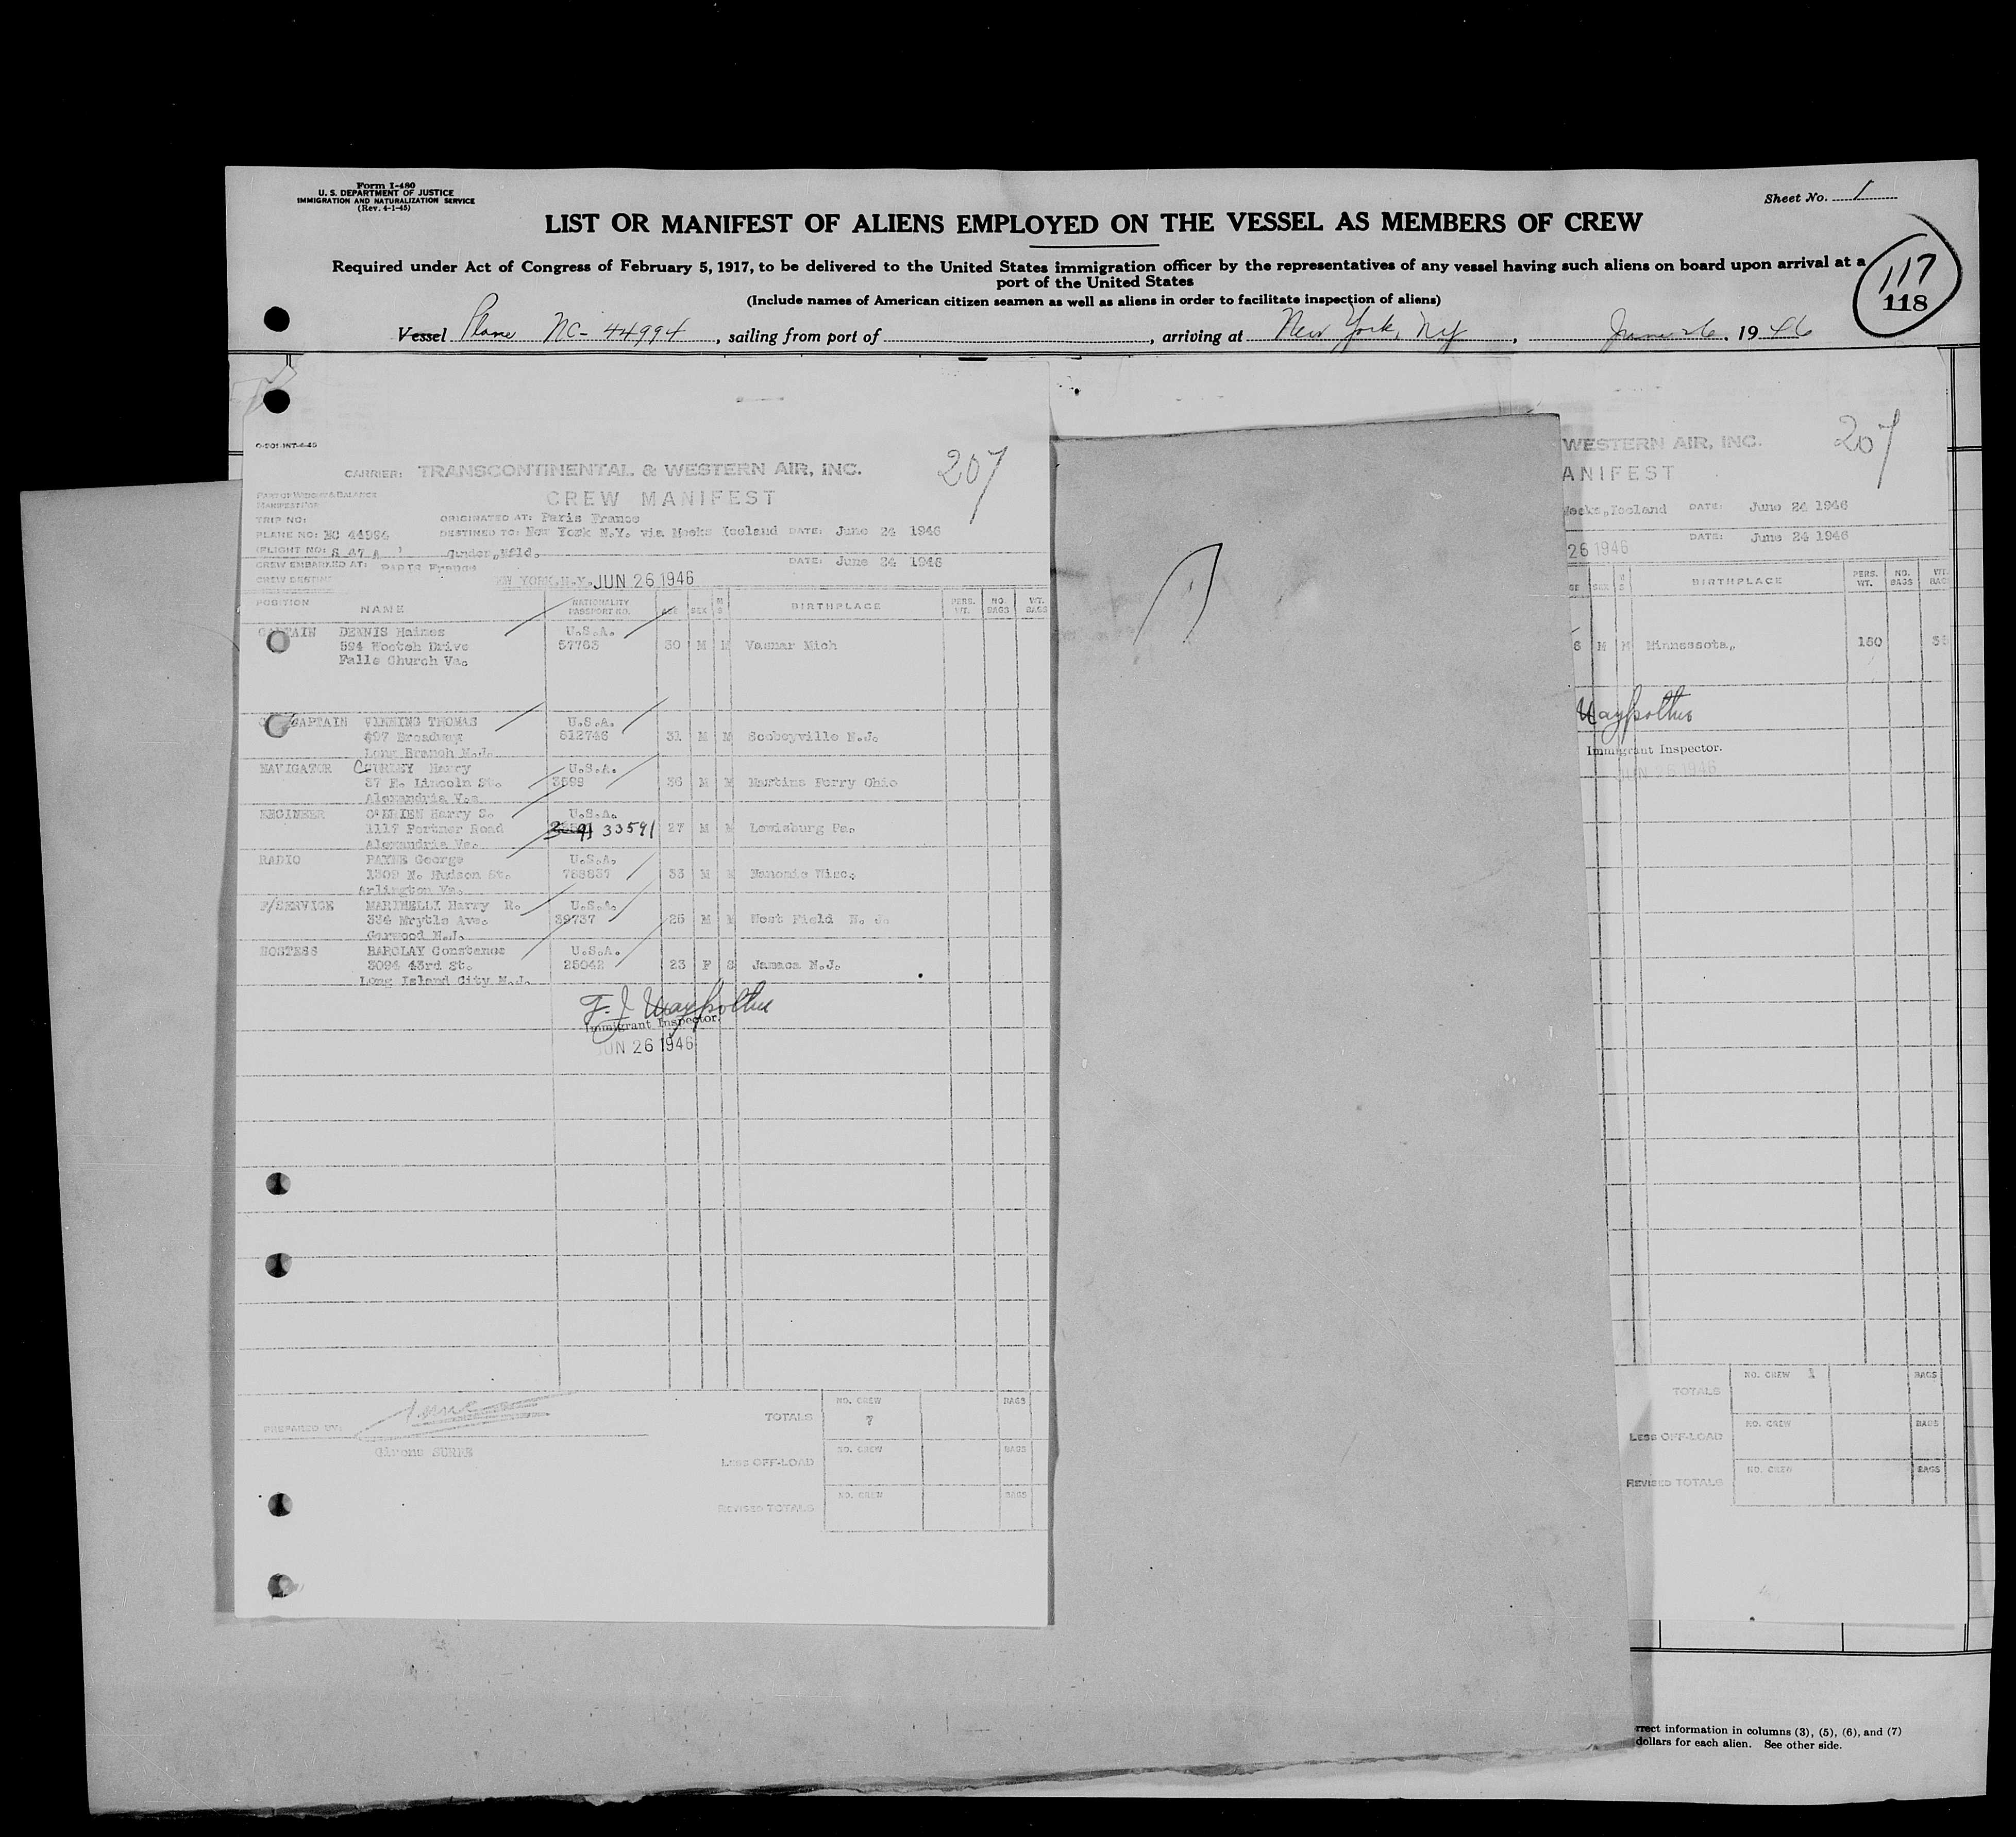 Form I-480
U. S. DEPARTMENT OF JUSTICE
IMMIGRATION AND NATURALIZATION SERVICE
(Rev. 4-1-45)
Sheet No. 1
LIST OR MANIFEST OF ALIENS EMPLOYED ON THE VESSEL AS MEMBERS OF CREW
Required under Act of Congress of February 5, 1917, to be delivered to the United States immigration officer by the representatives of any vessel having such aliens on board upon arrival at a
port of the United States
(Include names of American citizen seamen as well as aliens in order to facilitate inspection of aliens)
117
118
Vessel Plane NC-44994, sailing from port of , arriving at New York, NY, June 26, 1946
207
CARRIER: TRANSCONTINENTAL & WESTERN AIR, INC.
CREW MANIFEST
PART OF WEIGHT & BALANCE
TRIP NO: ORIGINATED AT: Paris France
PLANE NO: NC 44994 DESTINED TO: New York N.Y. via Meeks Iceland DATE: June 24 1946
(FLIGHT NO: Gander, Nfld.
CREW EMBARKED AT: Paris France DATE: June 24 1946
CREW DESTINED NEW YORK, N.Y. JUN 26 1946
POSITION NAME NATIONALITY PASSPORT NO. AGE SEX M S BIRTHPLACE PERS. WT. NO. BAGS WT. BAGS
CAPTAIN DENNIS Haines U.S.A.
594 Drive 57763 30 M M Mich
Falls Church Va.
CAPTAIN VINNING THOMAS U.S.A.
Broadway 512746 31 M M Scobeyville N.J.
Long Branch N.J.
NAVIGATOR CURLEY Harry U.S.A.
37 E. Lincoln St. 3599 36 M M Martins Ferry Ohio
Alexandria Va.
ENGINEER O'BRIEN Harry S. U.S.A.
1117 Portner Road 33591 27 M M Lewisburg Pa.
Alexandria Va.
RADIO PAYNE George U.S.A.
1309 N. Hudson St. 33 M M Wisc.
Arlington Va.
F/SERVICE MARINELLI Harry R. U.S.A.
334 Mrytle Ave. 39737 26 M M West Field N. J.
Garwood N.J.
HOSTESS BARCLAY Constance U.S.A.
3094 43rd St. 25042 23 F S Jamaca N.J.
Long Island City N.J.
Immigrant Inspector.
JUN 26 1946
TOTALS NO. CREW 7 BAGS
PREPARED BY:
LESS OFF-LOAD NO. CREW BAGS
REVISED TOTALS NO. CREW BAGS
207
WESTERN AIR, INC.
ANIFEST
Meeks, Iceland DATE: June 24 1946
26 1946 DATE: June 24 1946
GE SEX M S BIRTHPLACE PERS. WT. NO. BAGS WT. BAG
6 M M Minnessota, 150 35
Immigrant Inspector.
TOTALS NO. CREW 1 BAGS
LESS OFF-LOAD NO. CREW BAGS
REVISED TOTALS NO. CREW BAGS
rrect information in columns (3), (5), (6), and (7)
dollars for each alien. See other side.